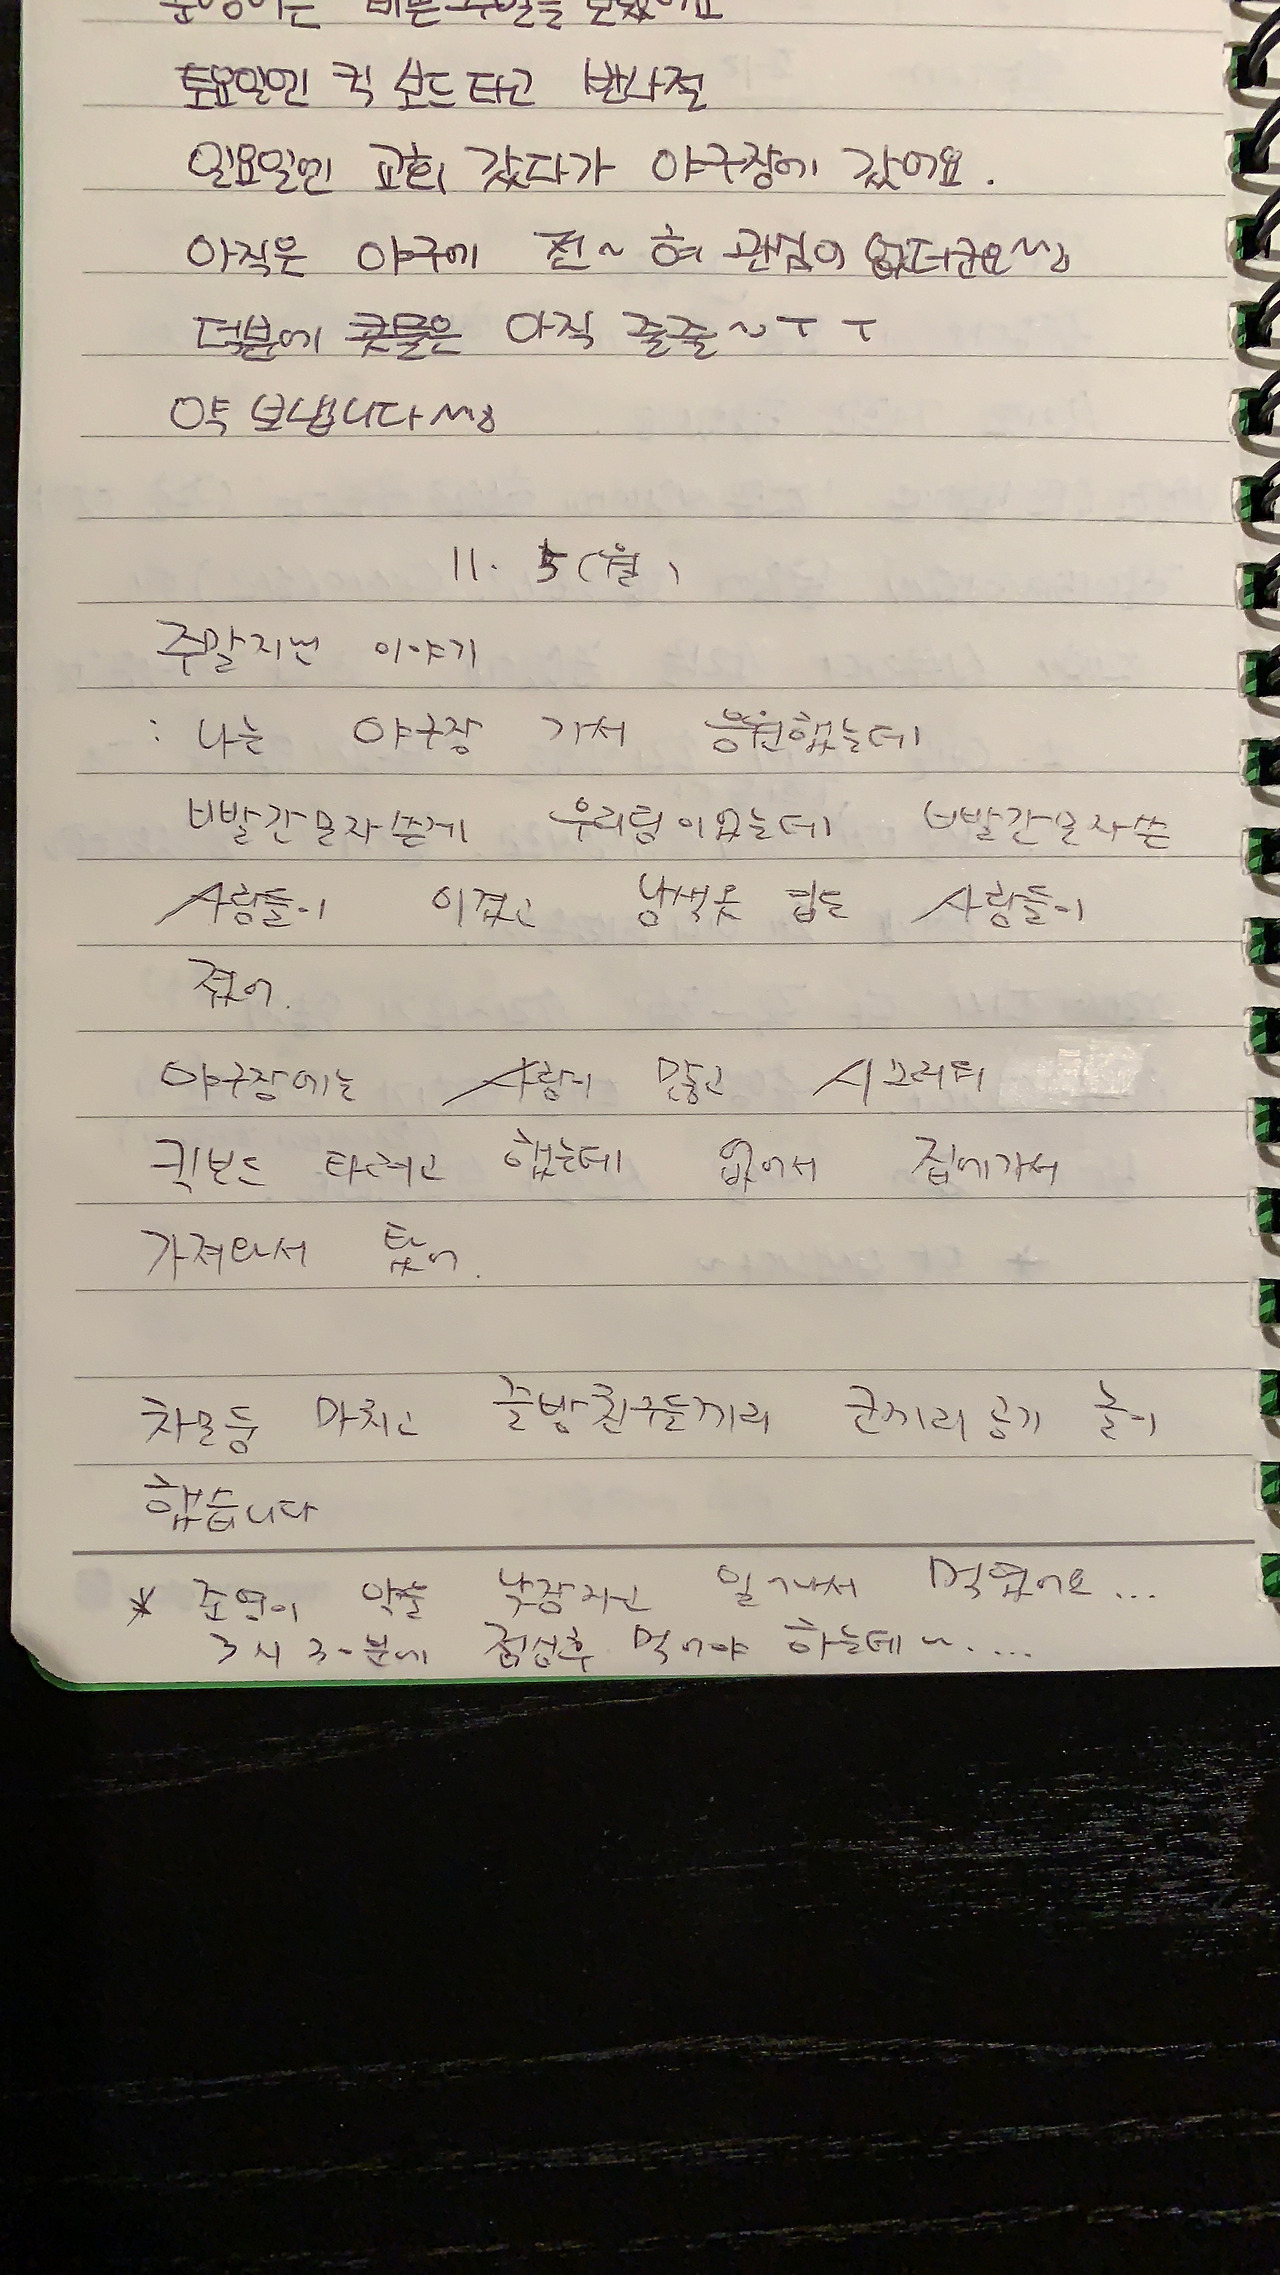 바쁜 주말을 보냈어요
토요일엔 킥 보드 타고 반나절
일요일엔 교회 갔다가 야구장에 갔어요.
아직은 야구에 전~혀 관심이 없더군요^^;
덕분에 콧물은 아직 줄줄~ㅜㅜ
약 보냅니다^^;
11. 5(월)
주말지낸 이야기
: 나는 야구장 가서 응원했는데
빨간모자쓴게 우리팀이었는데 빨간모자쓴
사람들이 이겼고 남색옷 입는 사람들이
졌어.
야구장에는 사람이 많고 시끄러워
퀵보드 타려고 했는데 없어서 집에가서
가져와서 탔어.
차모둠 마치고 줄방친구들끼리 끼리 공기 놀이
했습니다
* 준영이 약을 낮잠자고 일어나서 먹였어요...
3시 30분에 점심후 먹어야 하는데~....